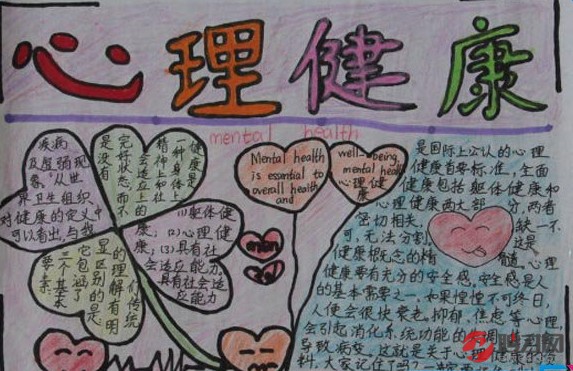 心理健康
mental health
健康是
一种身体上
精神上和社
会适应上的
完好状态,而不
是没有
疾病
及虚弱现
象。"从世
界卫生组织
对健康的定义中
可以看出,与我
们传统
的理解有明
显区别的是,
它包涵了
三个基本
要素:
(1)躯体健
康;(2)心理健
康;(3)具有社
会适应能力.
具有社会
适应能力
Mental health
is essential to
overall health
and
well-being,
mental health
心理健康
men
tal
是国际上公认的心理
健康首要标准,全面
健康包括躯体健康和
心理健康两大部分,两者
密切相关,缺一不
可,无法分割。这是
健康概念的精髓。心理
健康要有充分的安全感,安全感是人
的基本需要之一,如果惶惶不可终日,
人便会很快衰老。抑郁、焦虑等心理,
会引起消化系统功能的失调,
导致病变。这就是关于心理健康的资
料,大家记住了吗?